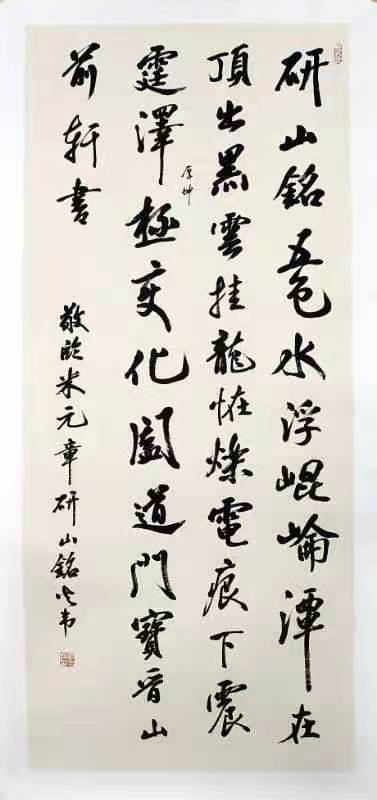 研山銘五色水浮崐崘潭在
頂出黑雲挂龍恠爍電痕下震
厚坤
霆澤極变化闔道門寶晉山
前軒書
敬臨米元章研山銘